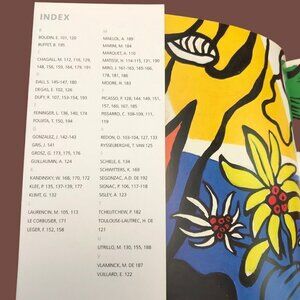 INDEX
B
BOUDIN, E. 101, 120
BUFFET, B. 195
C
CHAGALL, M. 112, 116, 129,
148, 156, 159, 164, 176, 191
D
DALI, S. 145-147, 180
DEGAS, E. 102, 126
DUFY, R. 107, 153-154, 193
F
FEININGER, L. 138, 140, 174
FOUJITA, T. 150, 144
G
GONZALEZ, J. 142-143
GRIS, J. 141
GROSZ, G. 173, 175, 176
GUILLAUMIN, A. 124
K
KANDINSKY, W. 168, 170, 172
KLEE, P. 135, 137-139, 177
KLIMT, G. 132
L
LAURENCIN, M. 105, 113
LE CORBUSIER, 171
LEGER, F. 152, 158
M
MAILLOL, A. 189
MARINI, M. 184
MARQUET, A. 110
MATISSE, H. 114-115, 131, 190
MIRO, J. 161-163, 165-166,
178, 181, 186
MOORE, H. 183
P
PICASSO, P. 128, 144, 149, 151,
157, 160, 167, 185
PISSARRO, C. 108-109, 111,
119
R
REDON, O. 103-104, 127, 133
RYSSELBERGHE, T. VAN 125
S
SCHIELE, E. 134
SCHWITTERS, K. 169
SEGONZAC, A.D. DE 192
SIGNAC, P. 106, 117-118
SISLEY, A. 123
T
TCHELITCHEW, P. 182
TOULOUSE-LAUTREC, H. DE
121
U
UTRILLO, M. 130, 155, 188
V
VLAMINCK, M. DE 187
VUILLARD, E. 122